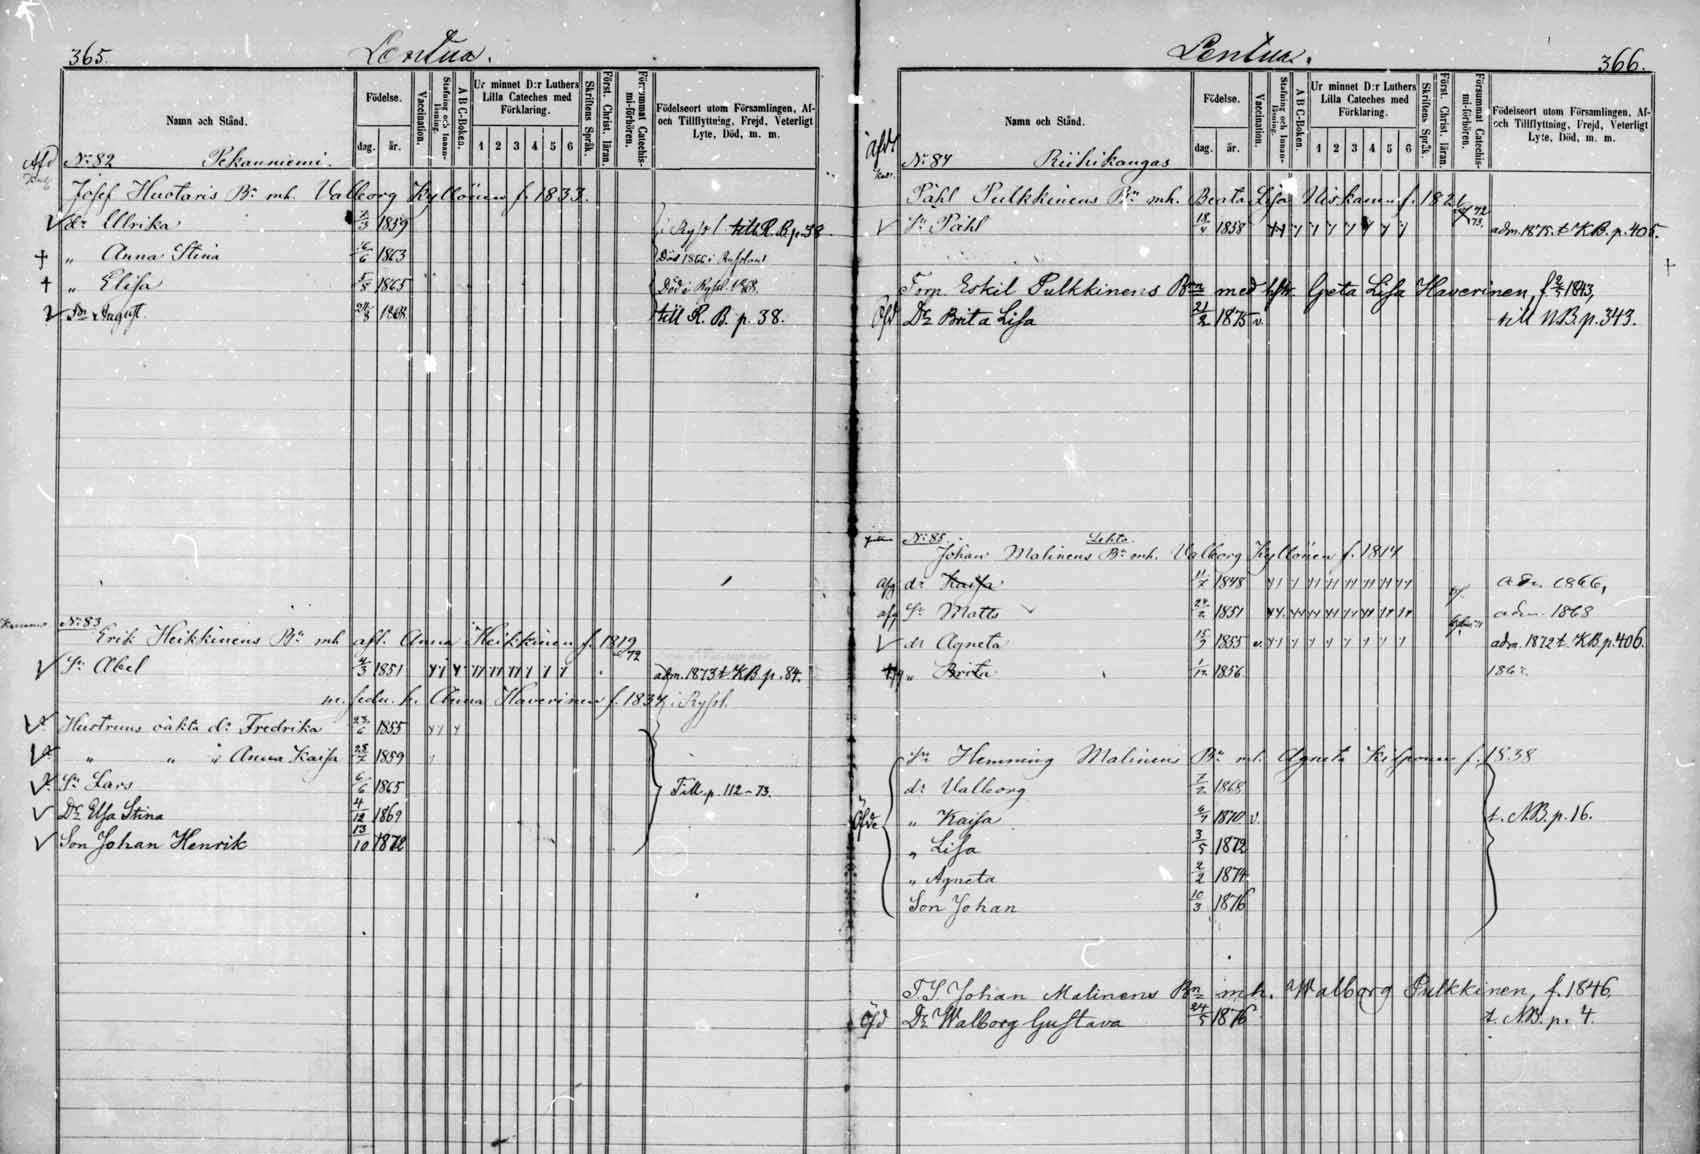 365. Lentua.
Namn och Stånd.
Födelse.
dag. år.
Vaccination.
Stafning och Innanläsning.
A B C-Boken.
Ur minnet D:r Luthers Lilla Cateches med Förklaring.
1 2 3 4 5 6
Skriftens Språk.
Först. Christ. läran.
Försummat Catechismi-förhören.
Födelseort utom Församlingen, Af- och Tillflyttning, Frejd, Veterligt Lyte, Död, m. m.
Afd No 82 Pekanniemi.
Josef Huotaris Bn mh. Valborg Kyllönen f. 1833.
dr Ullrika 2/3 1859 i Ryssl. till R. B. p. 38
† „ Anna Stina 6/6 1863 Död 1866 i Ryssland
† „ Elisa 5/8 1865 Död i Ryssl. 1868.
Son August. 24/8 1868 till R. B. p. 38.
No 83
Erik Heikkinens Bn mh afl. Anna Heikkinen f. 1819
72
Sn Abel 4/3 1851 adm. 1873 t. KB. p. 84.
m. sedn. h. Anna Haverinen f. 1834 i Ryssl.
Hustruns oäkta dr Fredrika 24/6 1855
„ „ „ Anna Kaisa 28/7 1859
Sn Lars 6/6 1865 Till p. 112-73.
Dr Elsa Stina 4/12 1869
Son Johan Henrik 13/10 1872
Lentua. 366.
Namn och Stånd.
Födelse.
dag. år.
Vaccination.
Stafning och Innanläsning.
A B C-Boken.
Ur minnet D:r Luthers Lilla Cateches med Förklaring.
1 2 3 4 5 6
Skriftens Språk.
Först. Christ. läran.
Försummat Catechismi-förhören.
Födelseort utom Församlingen, Af- och Tillflyttning, Frejd, Veterligt Lyte, Död, m. m.
No 84 Riihikangas
Påhl Pulkkinens Bn mh. Beata Lisa
72 73.
Sn Påhl 18/4 1858 adm. 1875. t. KB. p. 405.
Torp. Eskil Pulkkinens Bn med hstr. Greta Lisa Haverinen, f. 2/5 1843,
Öfd Dr Brita Lisa 21/2 1875 v. till N.B. p. 343.
No 85. Lehto.
Johan Malinens Bn mh. Valborg Kyllönen f. 1814
afg dr Kaisa 11/7 1848 adm. 1866,
afg Sn Matts 24/2 1851 adm. 1868
dr Agneta 15/9 1855 v. adm. 1872 t. KB. p. 406.
„ Brita 1/12 1856
Hemming Malinens Bn mh. Agneta Kilponen f. 1838
dr Valborg 7/2 1868
„ Kaisa 1870 v. t. N.B. p. 16.
„ Lisa 3/5 1872
„ Agneta 2/2 1874
Son Johan 10/3 1876
T. S. Johan Malinens Bn mh. Walborg Pulkkinen, f. 1846.
Öfd Dr Walborg Gustava 24/5 1876 t. N.B. p. 4.